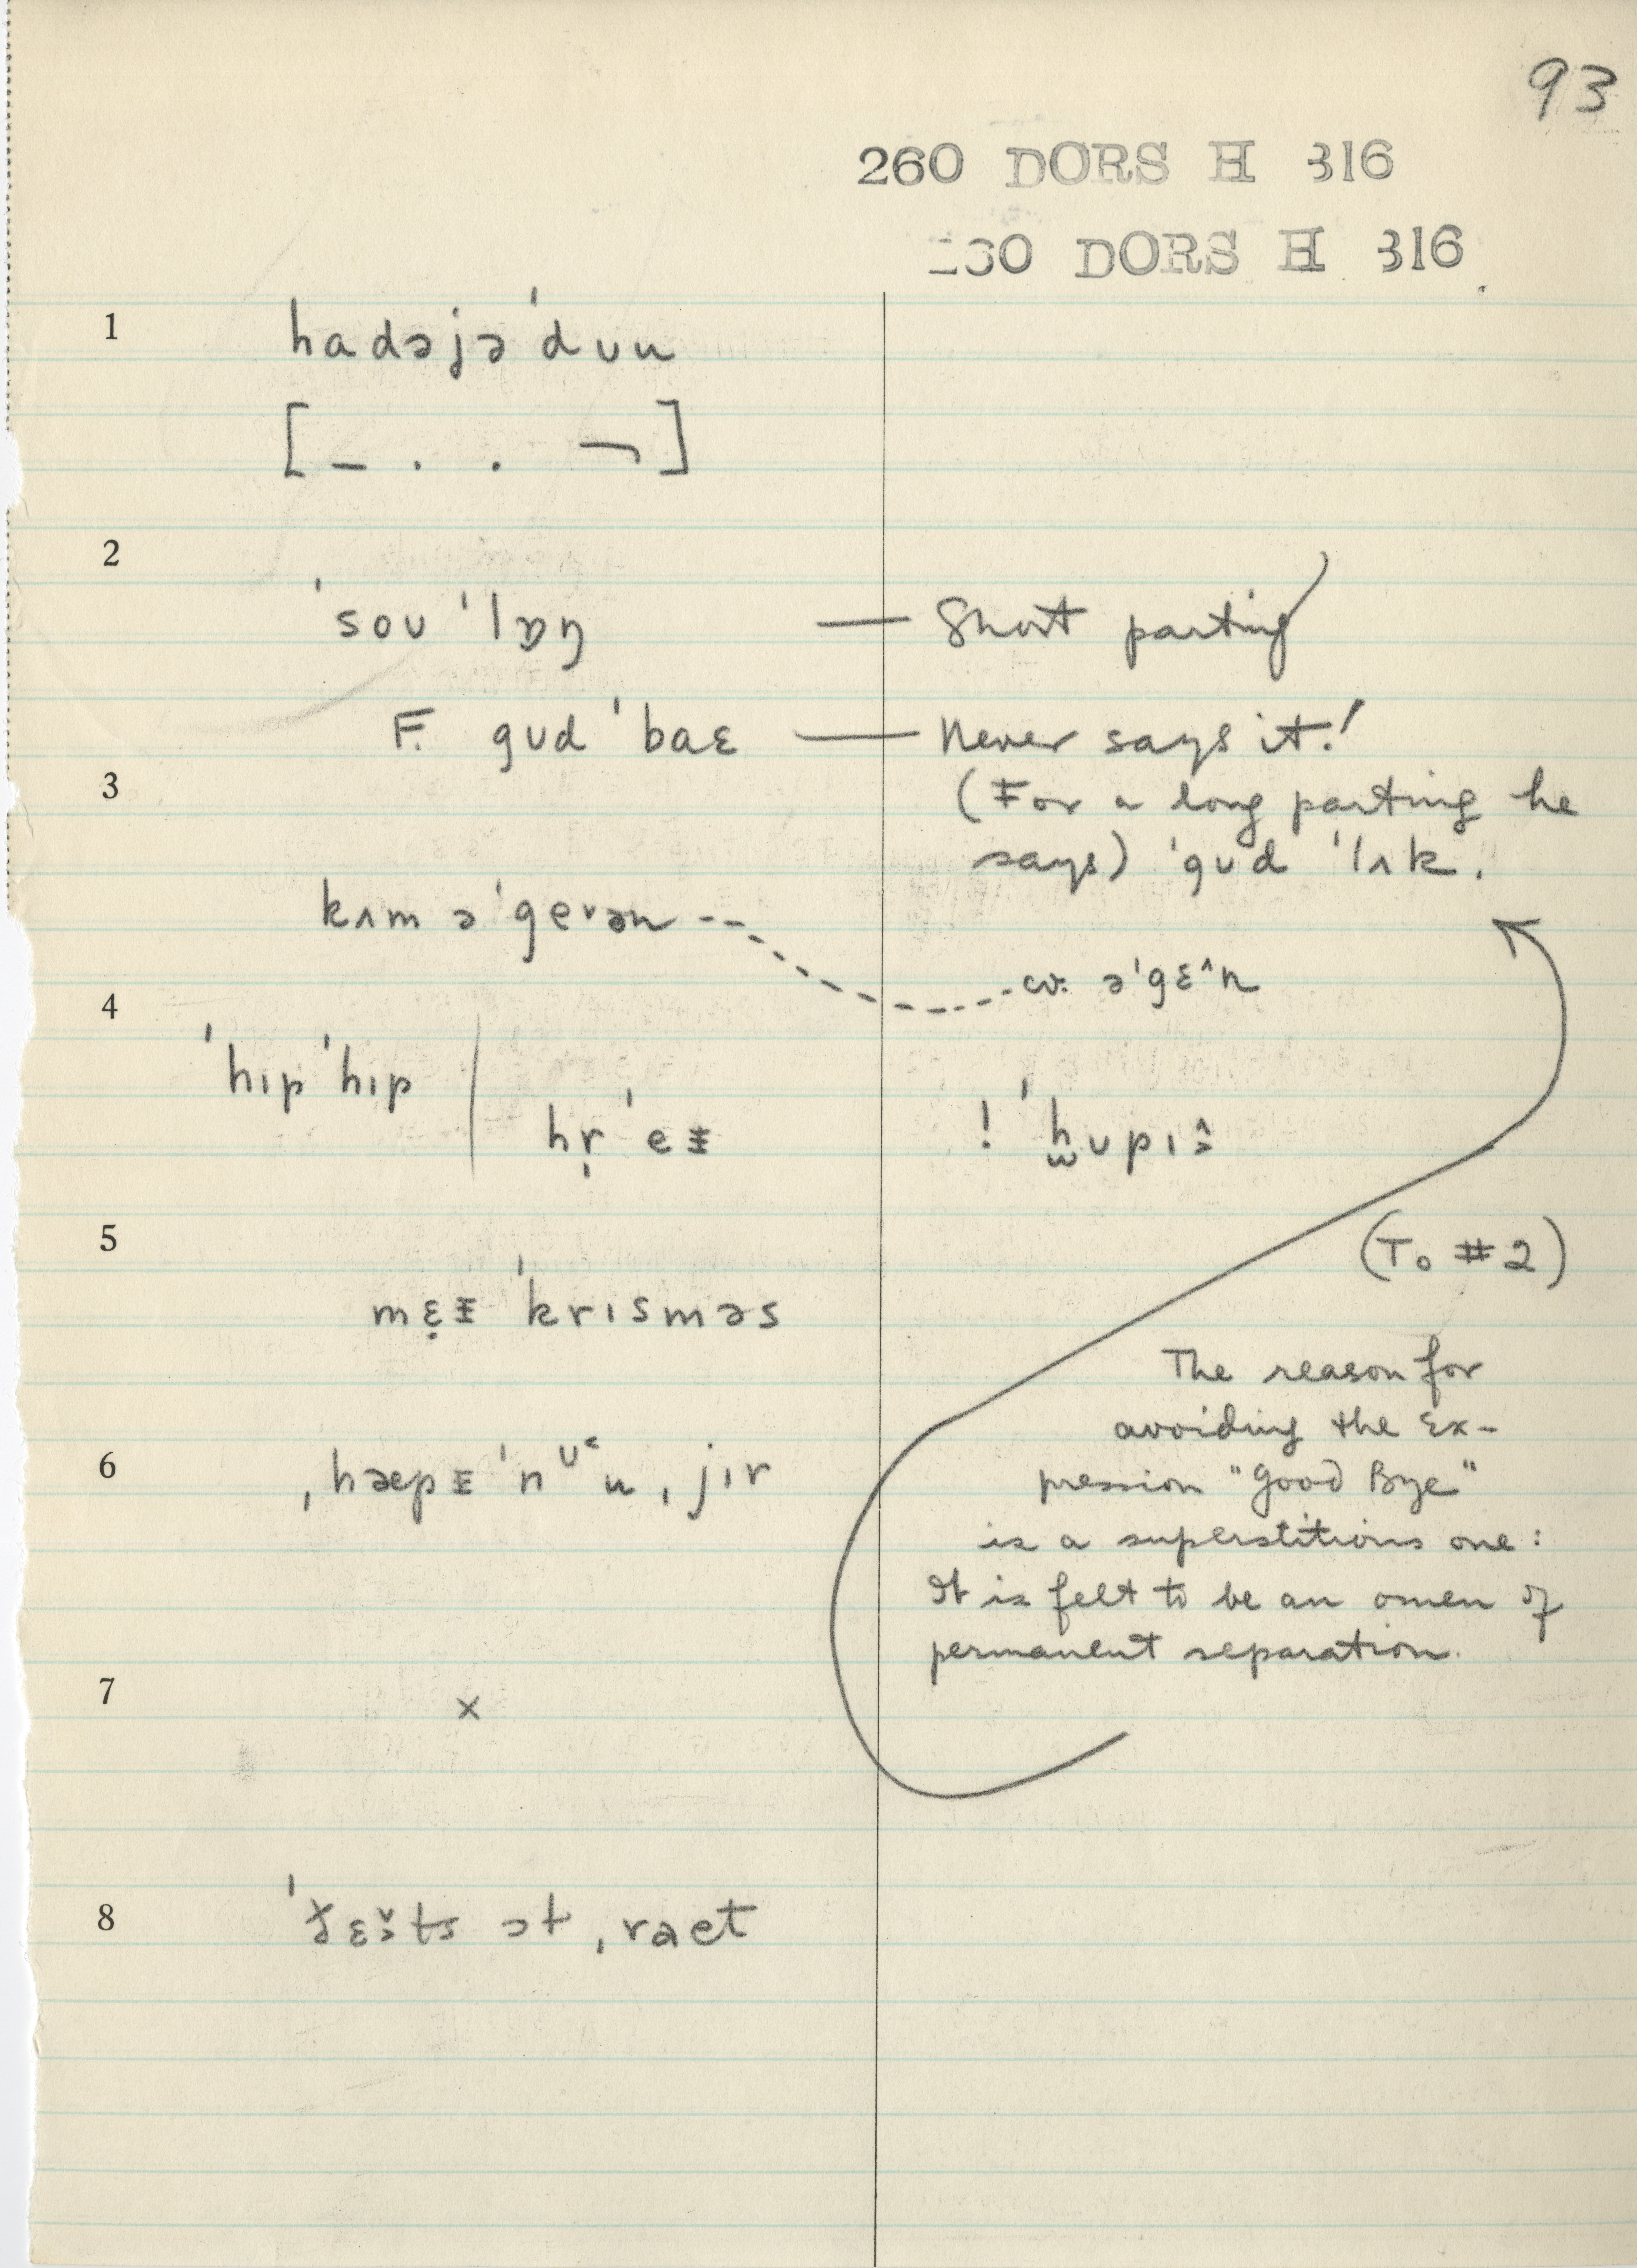 93
260 DORS H 316
30 DORS H 316
1
hadəjə'dʊu
[_ . . ¬]
2
'soʊ 'lɒŋ — Short parting
F. gʊd 'baɛ — Never says it!
3
(For a long parting he
says) 'gʊd 'lʌk.
kʌm ə'geᵛən --- cv. ə'gɛ^n
4
'hɪp 'hɪp | hṛ'eɨ ! 'h̫ʊpɪɜ̂
(To #2)
5
mɛ̣ɨ 'krɪsməs
The reason for
avoiding the Ex-
pression "Good Bye"
is a superstitious one:
It is felt to be an omen of
permanent separation.
6
ˌhæpɨ 'nᶷ˂u ˌjɪr
7
x
8
ɔt ˌraet